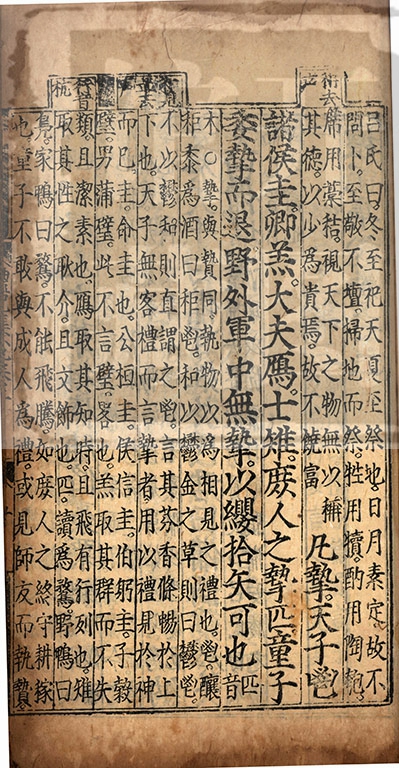 稱去
聲
行音
杭
呂氏曰冬至祀天夏至祭地日月素定故不
問卜至敬不壇掃地而祭牲用犢酌用陶匏
席用藁秸視天下之物無以稱
其德以少為貴焉故不饒富
凡摯天子鬯
諸侯圭卿羔大夫鴈士雉庶人之摯匹童子
委摯而退野外軍中無摯以纓拾矢可也
匹音
木○摯與贄同執物以為相見之禮也鬯釀
秬黍為酒曰秬鬯和以鬱金之草則曰鬱鬯
不以鬱和則直謂之鬯言其芬香條暢於上
下也天子無客禮而言摯者用以禮見於神
而已圭命圭也公桓圭侯信圭伯躬圭子穀
璧男蒲璧此不言璧畧也羔取其群而不失
類且潔素也鴈取其知時且飛有行列也雉
取其性之耿介且文飾也匹讀為鶩野鴨曰
鳧家鴨曰鶩不能飛騰如庶人之終守耕稼
也童子不敢與成人為禮或見師友而執贄